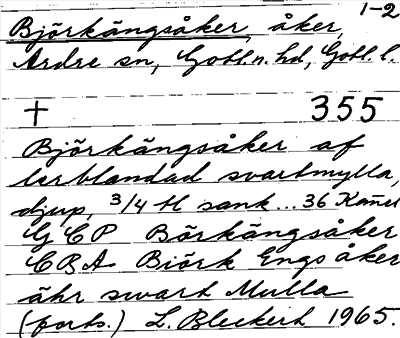 1-2
Björkängsåker, åker,
Ardre sn, Gotl.n. hd, Gotl. l.
† 355
Björkängsåker af
lerblandad svartmylla,
djup, 3/4 tl sank... 36 Kañel
G, C P Börkängsåker
C B A Biörk Engs åker
ähr swart Mulla
(forts.) L. Bleckert 1965.